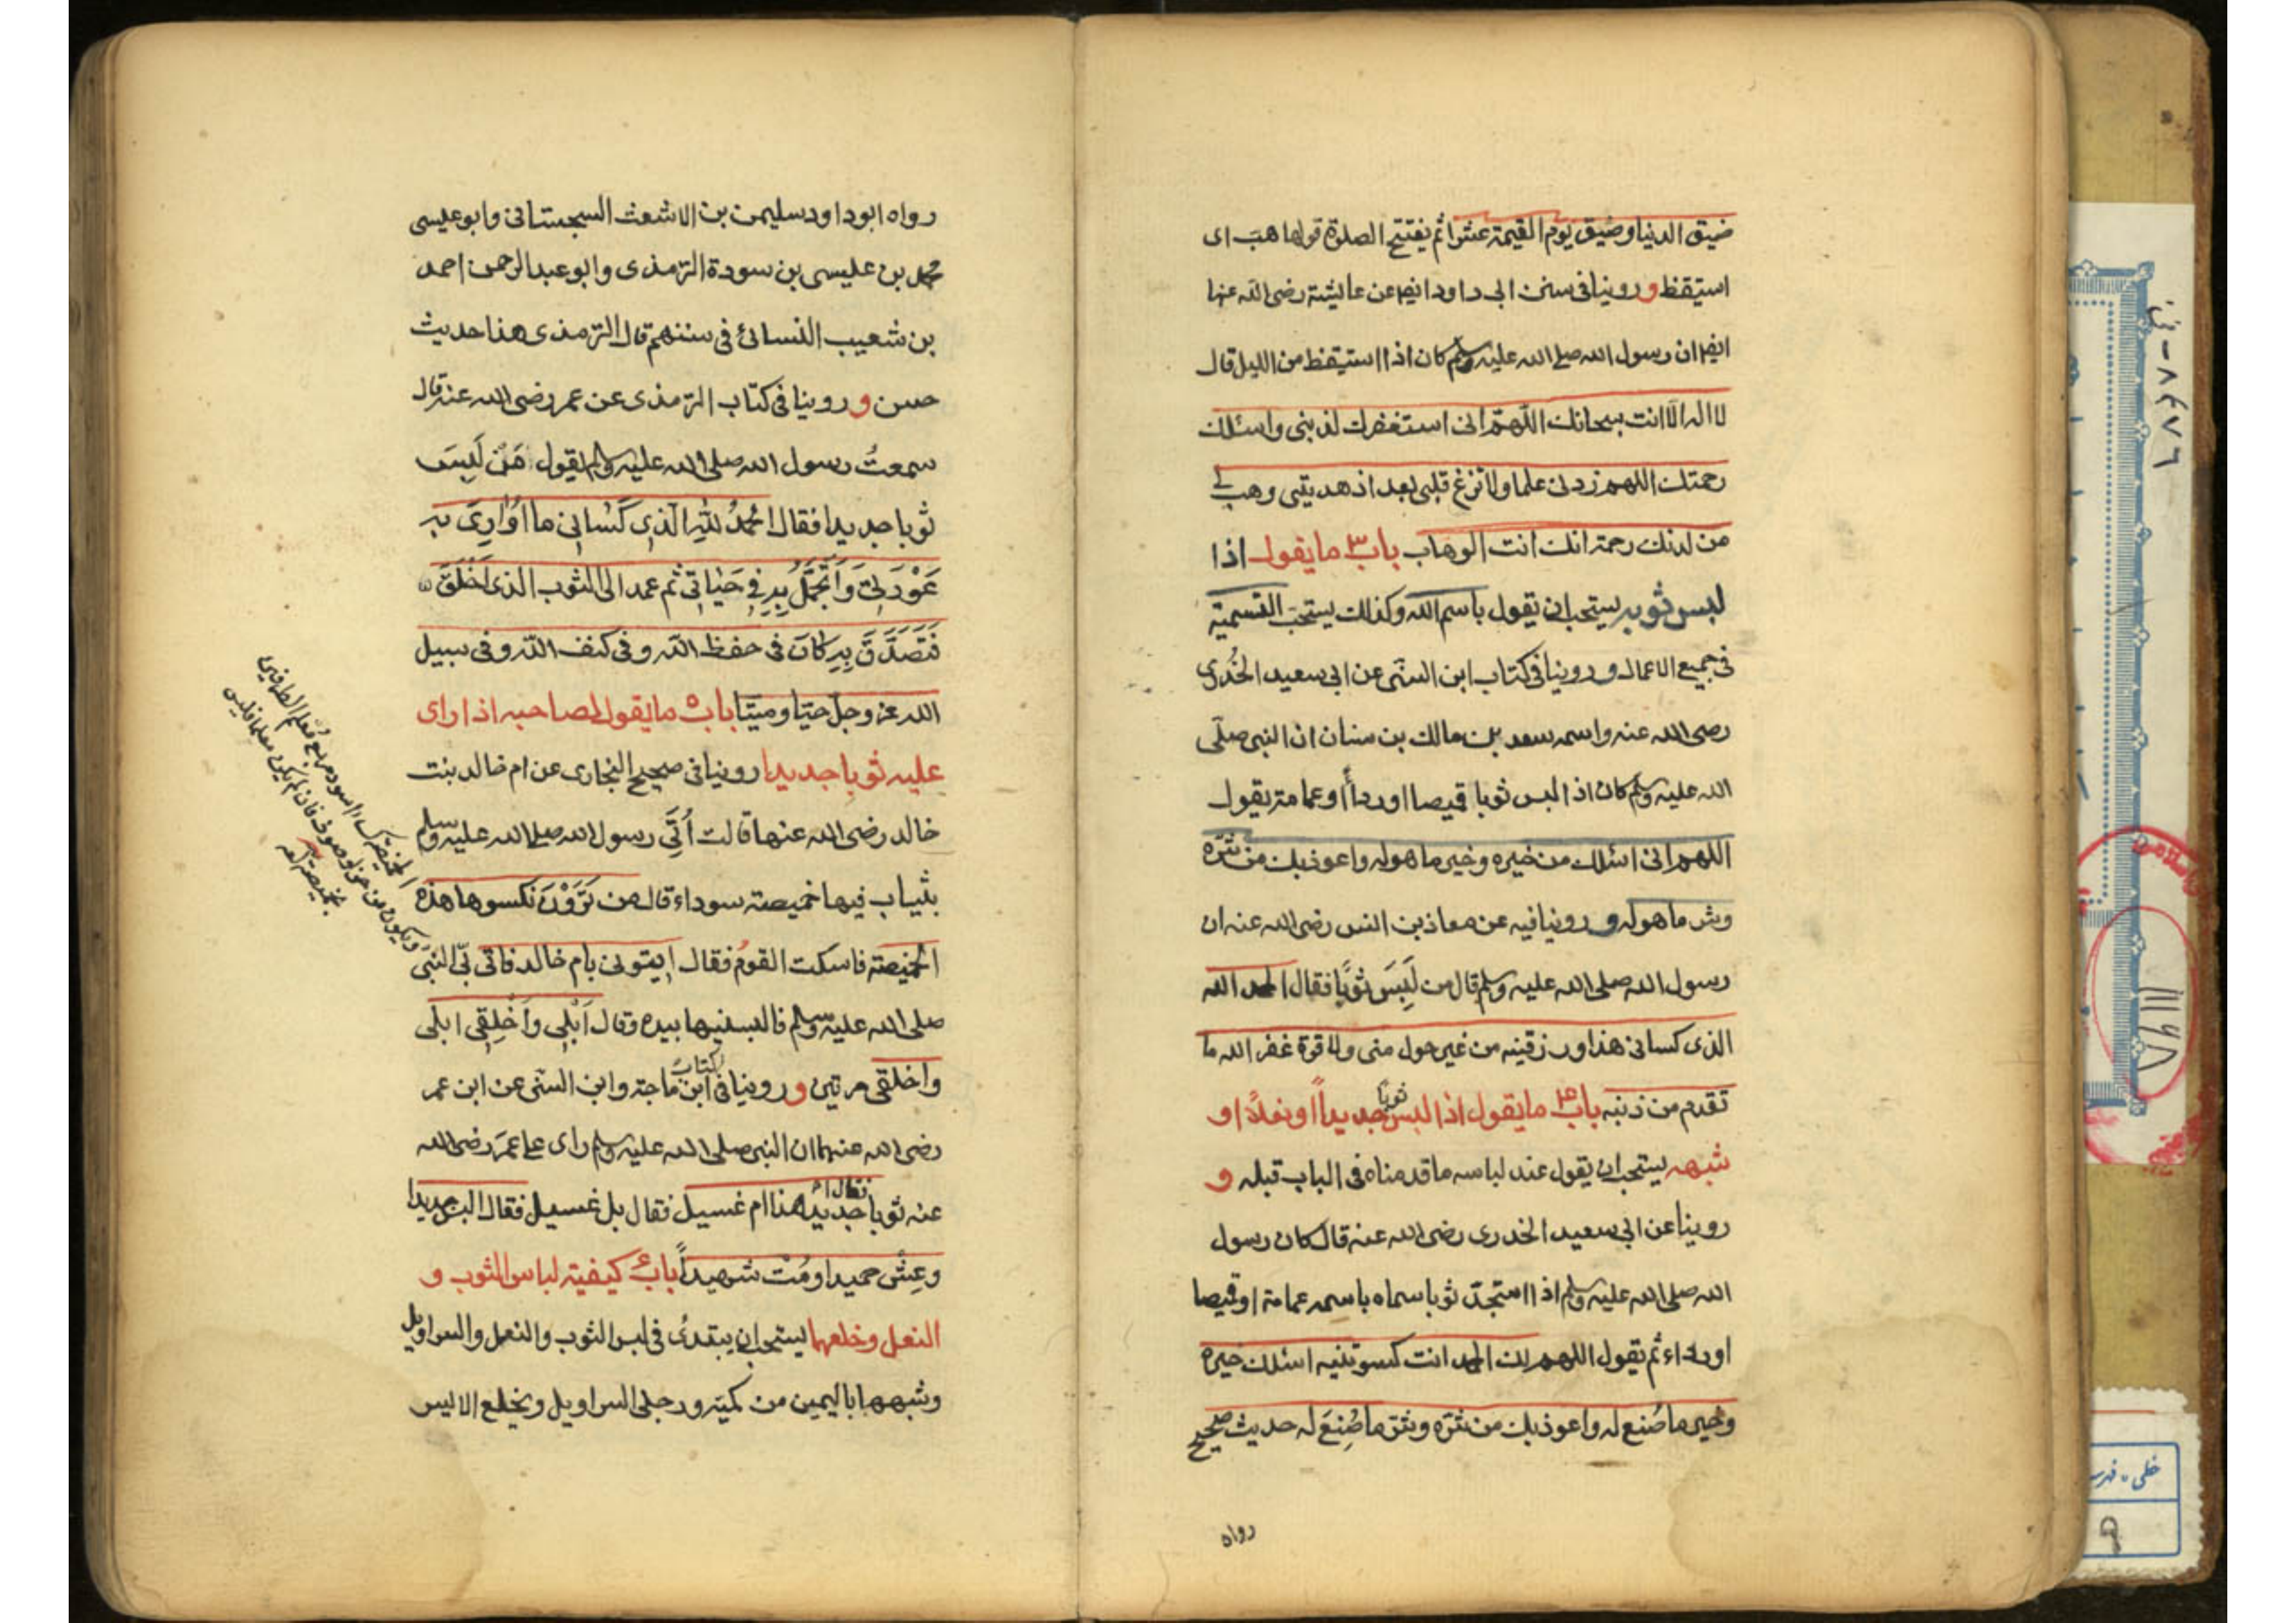 ضيق الدنيا وضيق يوم القيمة عشرا ثم يفتتح الصلوة قولها هب اى
استيقظ وروينا فى سنن ابى داود ايضا عن عايشة رضى الله عنها
ايضا ان رسول الله صلى الله عليه وسلم كان اذا استيقظ من الليل قال
لا اله الا انت سبحانك اللهم انى استغفرك لذنبى واسئلك
رحمتك اللهم زدنى علما ولا تزغ قلبى بعد اذ هديتنى وهب لى
من لدنك رحمة انك انت الوهاب باب ٣ ما يقول اذا
لبس ثوبه يستحب ان يقول باسم الله وكذلك يستحب التسمية
فى جميع الاعمال وروينا فى كتاب ابن السنى عن ابى سعيد الخُدرى
رضى الله عنه واسمه سعد بن مالك بن سنان ان النبى صلى
الله عليه وسلم كان اذا لبس ثوبا قميصا او رداً او عمامة يقول
اللهم انى اسئلك من خيره وخير ما هو له واعوذ بك من شره
وشر ما هو له وروينا فيه عن معاذ بن انس رضى الله عنه ان
رسول الله صلى الله عليه وسلم قال من لَبِسَ ثوبًا فقال الحمد لله
الذى كسانى هذا ورزقنيه من غير حول منى ولا قوة غفر الله ما
تقدم من ذنبه باب ۴ ما يقول اذا لبس ثوبًا جديداً او نعلاً او
شبهه يستحب ان يقول عند لباسه ما قدمناه فى الباب قبله و
روينا عن ابى سعيد الخدرى رضى الله عنه قال كان رسول
الله صلى الله عليه وسلم اذا استجدّ ثوبا سماه باسمه عمامة او قميصا
او رداء ثم يقول اللهم لك الحمد انت كسوتنيه اسئلك خيره
وخير ما صُنع له واعوذ بك من شره وشر ما صُنِعَ له حديث صحيح
رواه
رواه ابو داود سليمن بن الاشعث السجستانى وابو عيسى
محمد بن عيسى بن سورة الترمذى وابو عبد الرحمن احمد
بن شعيب النسائى فى سننهم قال الترمذى هذا حديث
حسن وروينا فى كتاب الترمذى عن عمر رضى الله عنه قال
سمعتُ رسول الله صلى الله عليه وسلم يقول مَنْ لَبِسَ
ثوبا جديدا فقال الحمدُ للهِ الَّذِى كَسَانِى ما اُوَارِى بِه
عَوْرَتِى وَاَتَجَمَّلُ بِهِ فِى حَيَاتِى ثم عمد الى الثوب الذى اَخْلَقَ
فَتَصَدَّقَ بِهِ كَانَ فى حفظ الله وفى كنف الله وفى سبيل
الله عز وجل حيّا وميتا باب ٥ ما يقول لصاحبه اذا راى
عليه ثوبا جديدا روينا فى صحيح البخارى عن ام خالد بنت
خالد رضى الله عنها قالت اُتِىَ رسول الله صلى الله عليه وسلم
بثياب فيها خميصة سوداء قال من تَرَوْنَ نكسوها هذه
الخميصة فاسكت القوم فقال ايتونى بام خالد فاتى بى النبى
صلى الله عليه وسلم فالبسنيها بيده وقال اَبْلِى وَاَخْلِقِى ابلى
واخلقى مرتين وروينا فى كتاب ابن ماجة وابن السنى عن ابن عمر
رضى الله عنهما ان النبى صلى الله عليه وسلم راى على عمَرَ رضى الله
عنه ثوبا فقال أجديد هذا ام غسيل فقال بل غسيل فقال البس جديدا
وعِشْ حميدا ومُتْ شهيداً باب ٦ كيفية لباس الثوب و
النعل وخلعهما يستحب ان يبتدئ فى لبس الثوب والنعل والسراويل
وشبهها باليمين من كميه ورجلى السراويل ويخلع الايسر
الخميصة كساء اسود مربع معلم الطرفين
ويكون من خز او صوف فان لم يكن معلما فليس
بخميصة
٨٤٧٦
خطى - فهرست